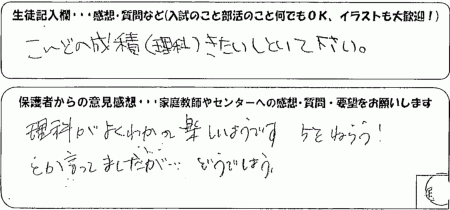 生徒記入欄・・・感想・質問など(入試のこと部活のこと何でもOK、イラストも大歓迎！)
こんどの成積(理科)きたいしといて下さい。
保護者からの意見感想・・・家庭教師やセンターへの感想・質問・要望をお願いします
理科がよくわかって楽しいようです 5とねらう!
とか言ってましたが… どうでしょう。